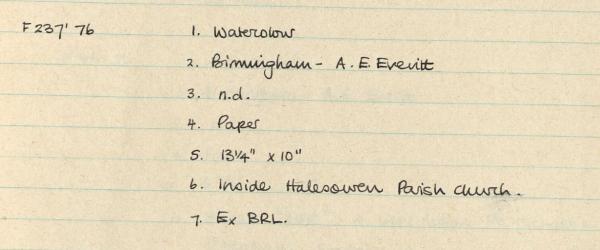 F237' 76 1. Watercolour
2. Birmingham - A. E. Everitt
3. n.d.
4. Paper
5. 13¼" x 10"
6. Inside Halesowen Parish church.
7. Ex BRL.